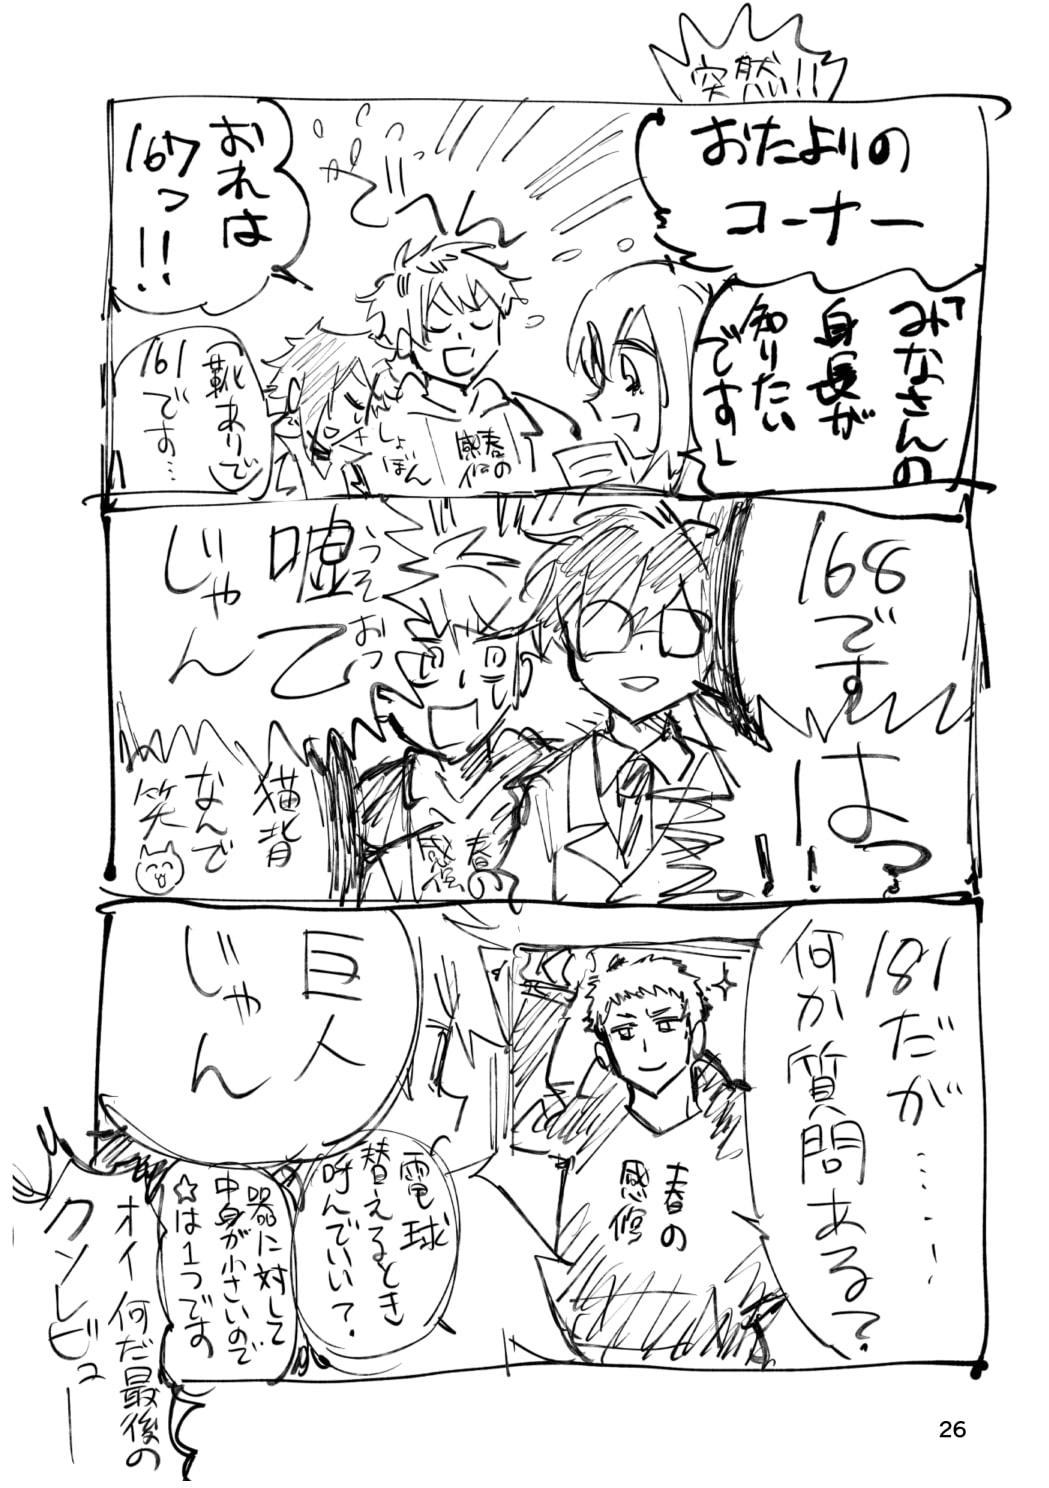 突然!!
おたよりの
コーナー
「みなさんの
身長が
知りたい
です」
でーん
おれは
167っ!!
春の
感修
しょ
ぼん
靴ありで
161
です…
168
です
はっ!!
嘘
うっそ
おっ
て
じゃん
猫背
なんで
笑
春の
感修
181だが……!
何か質問ある?
春の
感修
巨人
じゃん
電球
替えるとき
呼んでいい?
器に対して
中身が小さいので
☆は1つです
オイ何だ最後の
クソレビュー
26